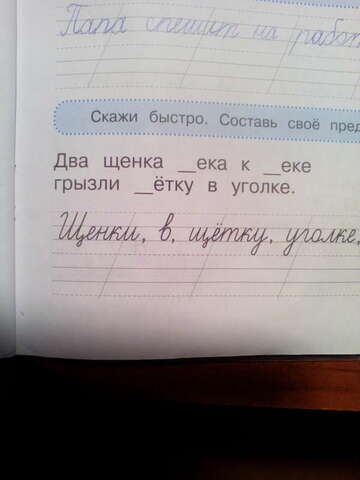 Папа спешит на работ
Скажи быстро. Составь своё пред
Два щенка __ека к __еке
грызли __ётку в уголке.
Щенки, в, щётку, уголке,